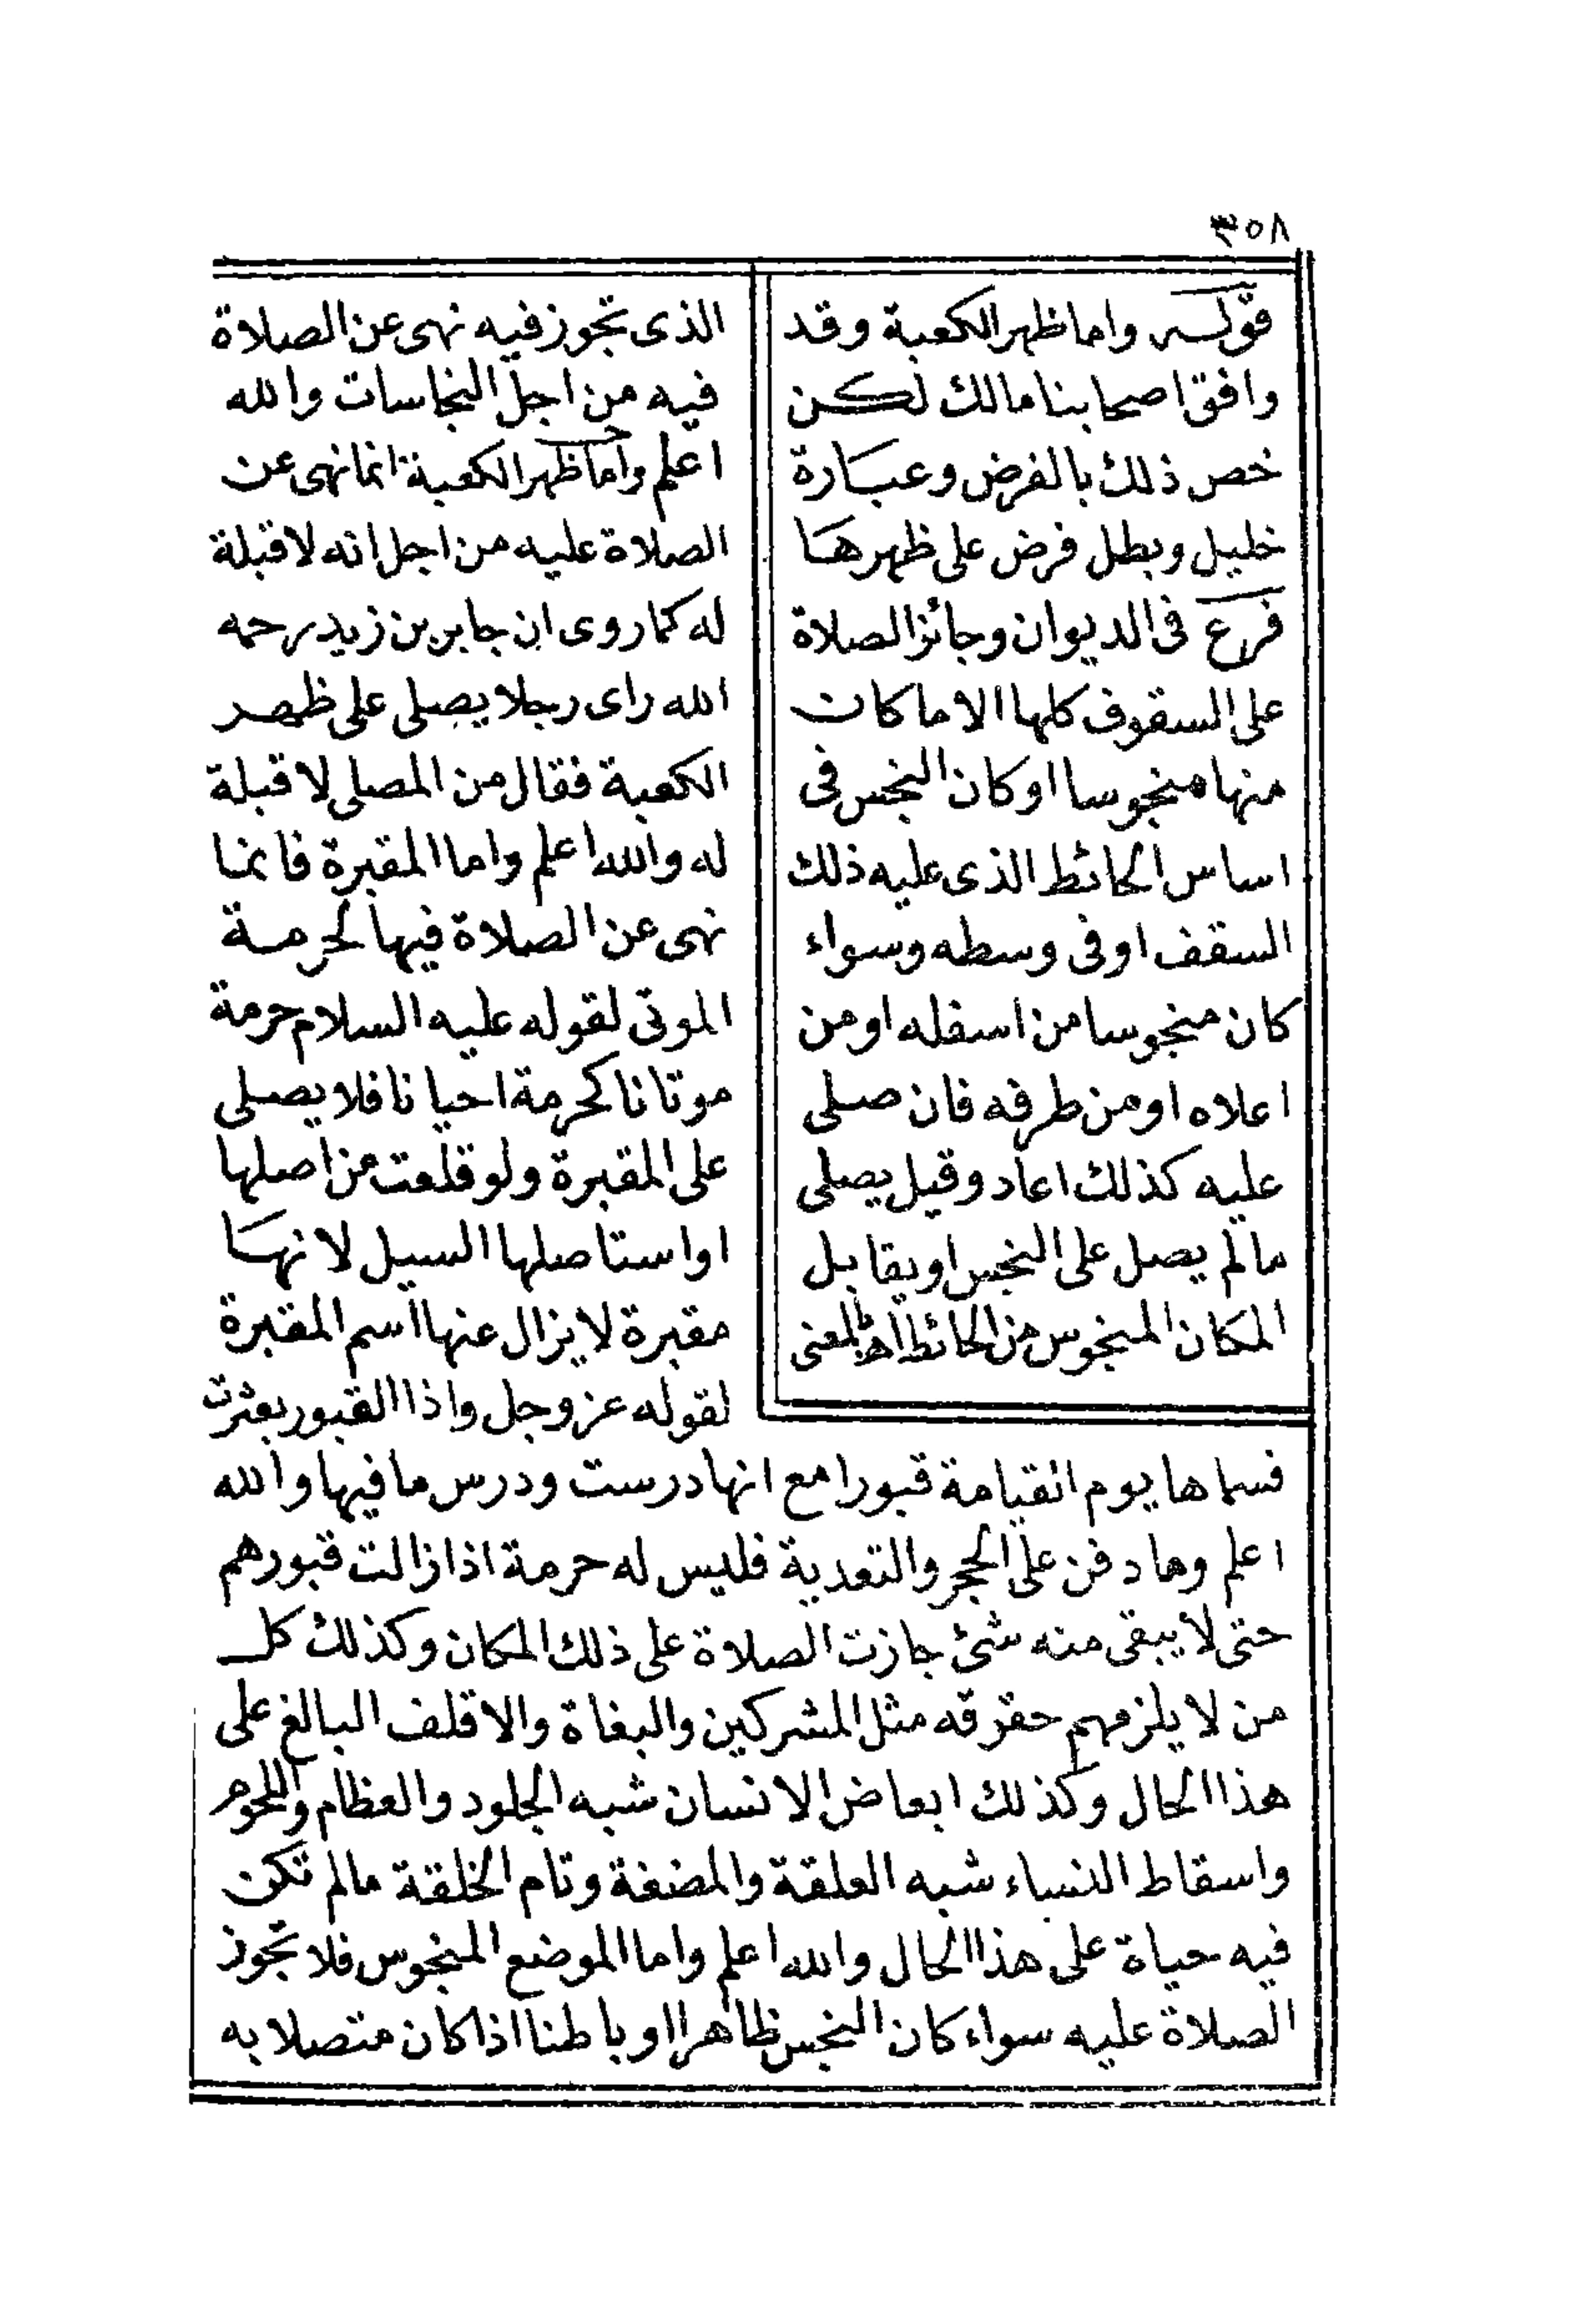 ٣٥٨
قوله واما ظهر الكعبة وقد
وافق اصحابنا مالك لكن
خص ذلك بالفرض وعبارة
خليل وبطل فرض على ظهرها
فرع فى الديوان وجائز الصلاة
على السقوف كلها الا ما كان
منها منجوسا او كان النجس فى
اساس الحائط الذى عليه ذلك
السقف او فى وسطه وسواء
كان منجوسا من اسفله او من
اعلاه او من طرفه فان صلى
عليه كذلك اعاد وقيل يصلى
ما لم يصل على النجس او يقابل
المكان المنجوس من الحائط اهـ بالمعنى
الذى تجوز فيه نهى عن الصلاة
فيه من اجل النجاسات والله
اعلم واما ظهر الكعبة انما نهى عن
الصلاة عليه من اجل انه لا قبلة
له كما روى ان جابر بن زيد رحمه
الله راى رجلا يصلى على ظهر
الكعبة فقال من المصلى لا قبلة
له والله اعلم واما المقبرة فانما
نهى عن الصلاة فيها لحرمة
الموتى لقوله عليه السلام حرمة
موتانا كحرمة احيانا فلا يصلى
على المقبرة ولو قلعت من اصلها
او استاصلها السيل لانها
مقبرة لا يزال عنها اسم المقبرة
لقوله عز وجل واذا القبور بعثرت
فسماها يوم القيامة قبورا مع انها درست ودرس ما فيها والله
اعلم وما دفن على الحجر والتعدية فليس له حرمة اذا زالت قبورهم
حتى لا يبقى منه شئ جازت الصلاة على ذلك المكان وكذلك كل
من لا يلزمهم حقوقه مثل المشركين والبغاة والاقلف البالغ على
هذا الحال وكذلك ابعاض الانسان شبه الجلود والعظام واللحوم
واسقاط النساء شبه العلقة والمضغة وتام الخلقة مالم تكن
فيه حياة على هذا الحال والله اعلم واما الموضع المنجوس فلا تجوز
الصلاة عليه سواء كان النجس ظاهرا او باطنا اذا كان متصلا به